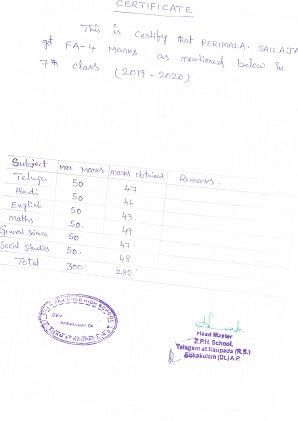 CERTIFICATE
This is certify that PERIMALA. SAILAJA
got FA-4 Marks as mentioned below in
7th class (2019-2020)
Subject Max Marks marks obtained Remarks.
Telugu 50 47
Hindi 50 46
English 50 43
maths 50 49
General science 50 47
Social studies 50 48
Total 300 280
HIGH SCHOOL
Head Master
Z.P.H. School,
Talagam at Naupada (R.S.)
Srikakulam (Dt.) A.P.